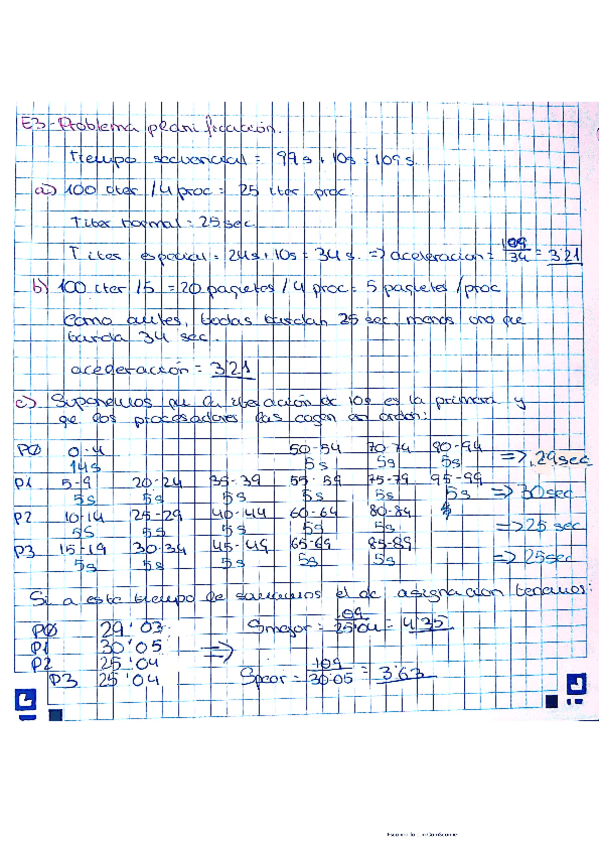 E3-Problema planificación.
Tiempo secuencial = 99s + 10s = 109s.
a) 100 iter / 4 proc = 25 iter proc.
Titer normal = 25 sec
T iter especial = 24s + 10s = 34s. => aceleracion = 109/34 = 3'21
b) 100 iter / 5 = 20 paquetes / 4 proc = 5 paquetes / proc
Como antes, todas tardan 25 sec, menos uno que
tarda 34 sec.
aceleración = 3'21
c) Suponemos que la iteración de 10s es la primera y
qe los procesadores las cogen en orden:
P0 0-4 50-54 70-74 90-94 => 29sec
14s 5s 5s 5s
P1 5-9 20-24 35-39 55-59 75-79 95-99 => 30sec
5s 5s 5s 5s 5s 5s
P2 10-14 25-29 40-44 60-64 80-84 => 25 sec
5s 5s 5s 5s 5s
P3 15-19 30-34 45-49 65-69 85-89 => 25sec
5s 5s 5s 5s 5s
Si a este tiempo le sumamos el de asignacion tenemos:
P0 29'03
P1 30'05 =>
P2 25'04
P3 25'04
Smejor = 109/25'04 = 4'35
Speor = 109/30'05 = 3'63